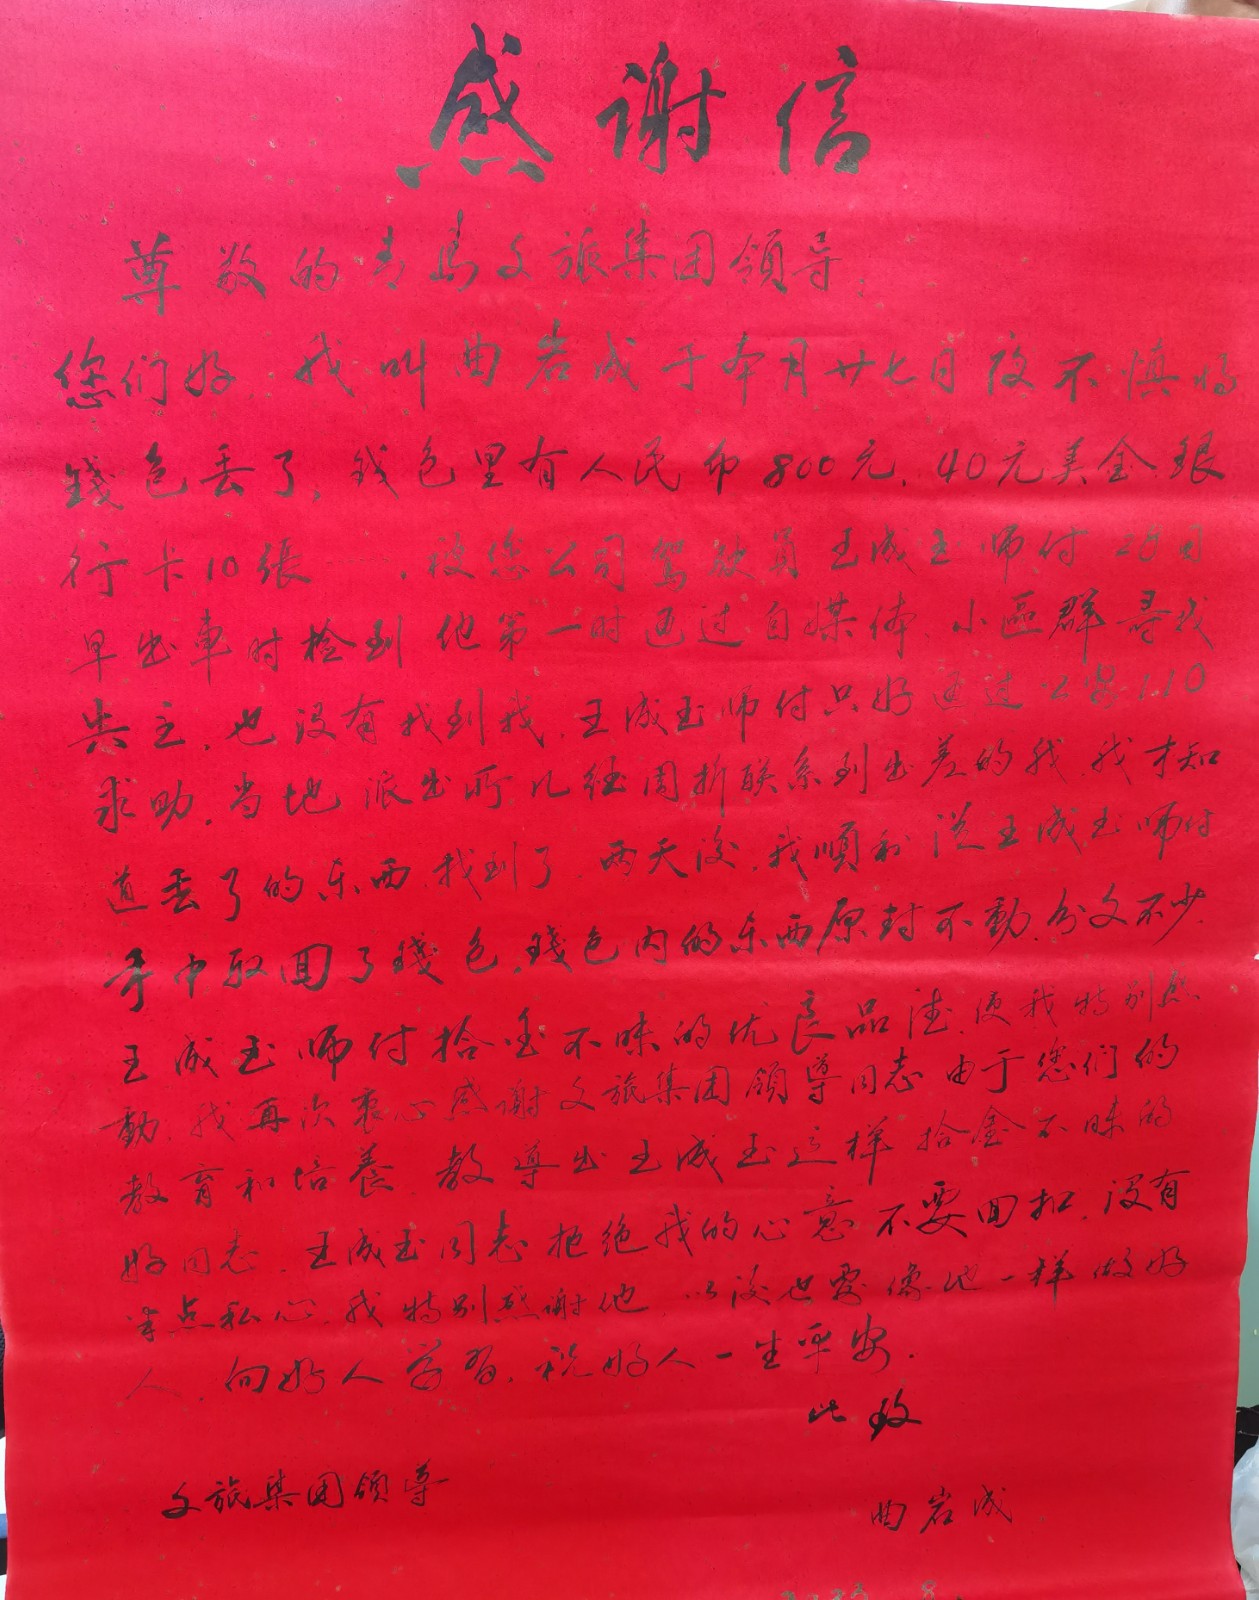 感谢信
尊敬的青島文旅集团領导：
您们好，我叫曲岩成于本月廿七日夜不慎将
錢包丢了，钱包里有人民币800元，40元美金，銀
行卡10張……，被您公司驾驶员王成玉师付 28日
早出車时捡到 他第一时通过自媒体，小區群寻找
失主，也没有找到我，王成玉师付只好通过公安110
求助，当地派出所几经周折联系到出差的我，我才知
道丢了的东西找到了，两天後，我順利從王成玉师付
手中取回了錢包，錢包内的东西原封不動，分文不少，
王成玉师付拾金不昧的优良品德，使我特别感
動，我再次衷心感谢文旅集团領導同志由于您们的
教育和培養，教導出王成玉这样拾金不昧的
好同志，王成玉同志拒绝我的心意不要回扣，没有
半点私心，我特别感谢他，以後也要像他一样做好
人，向好人学習，祝好人一生平安。
此致
文旅集团領導
曲岩成